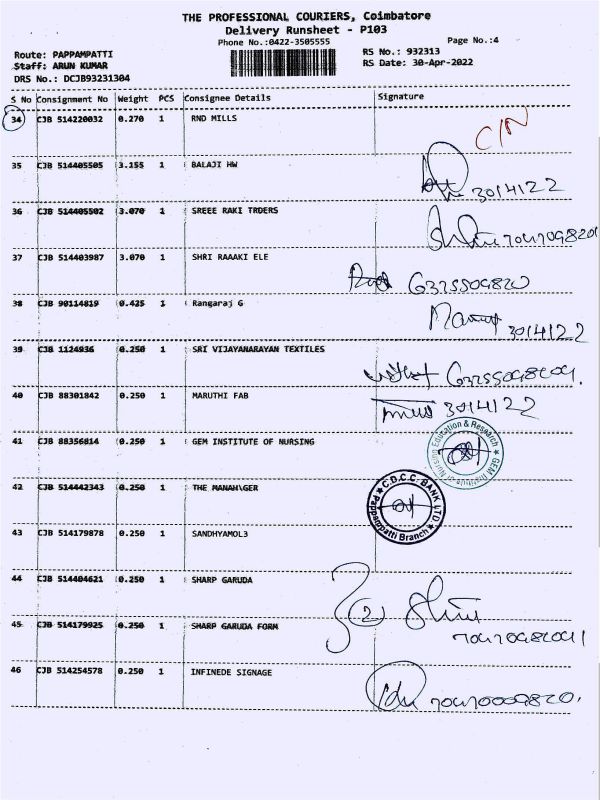 THE PROFESSIONAL COURIERS, Coimbatore
Delivery Runsheet - P103
Phone No.:0422-3505555
Page No.:4
Route: PAPPAMPATTI
RS No.: 932313
Staff: ARUN KUMAR
RS Date: 30-Apr-2022
DRS No.: DCJB93231304
S No Consignment No Weight PCS Consignee Details Signature
34 CJB 514220032 0.270 1 RND MILLS C/N
35 CJB 514405505 3.155 1 BALAJI HW 30/4/22
36 CJB 514405502 3.070 1 SREEE RAKI TRDERS
37 CJB 514403987 3.070 1 SHRI RAAAKI ELE
38 CJB 90114819 0.425 1 Rangaraj G 30/4/22
39 CJB 1124936 0.250 1 SRI VIJAYANARAYAN TEXTILES
40 CJB 88301842 0.250 1 MARUTHI FAB 30/4/22
41 CJB 88356814 0.250 1 GEM INSTITUTE OF NURSING
GEM Institute of Nursing Education & Research
42 CJB 514442343 0.250 1 THE MANAH\GER
C.D.C.C. BANK LTD
Pappampatti Branch
43 CJB 514179878 0.250 1 SANDHYAMOL3
44 CJB 514404621 0.250 1 SHARP GARUDA
2
45 CJB 514179925 0.250 1 SHARP GARUDA FORM
46 CJB 514254578 0.250 1 INFINEDE SIGNAGE